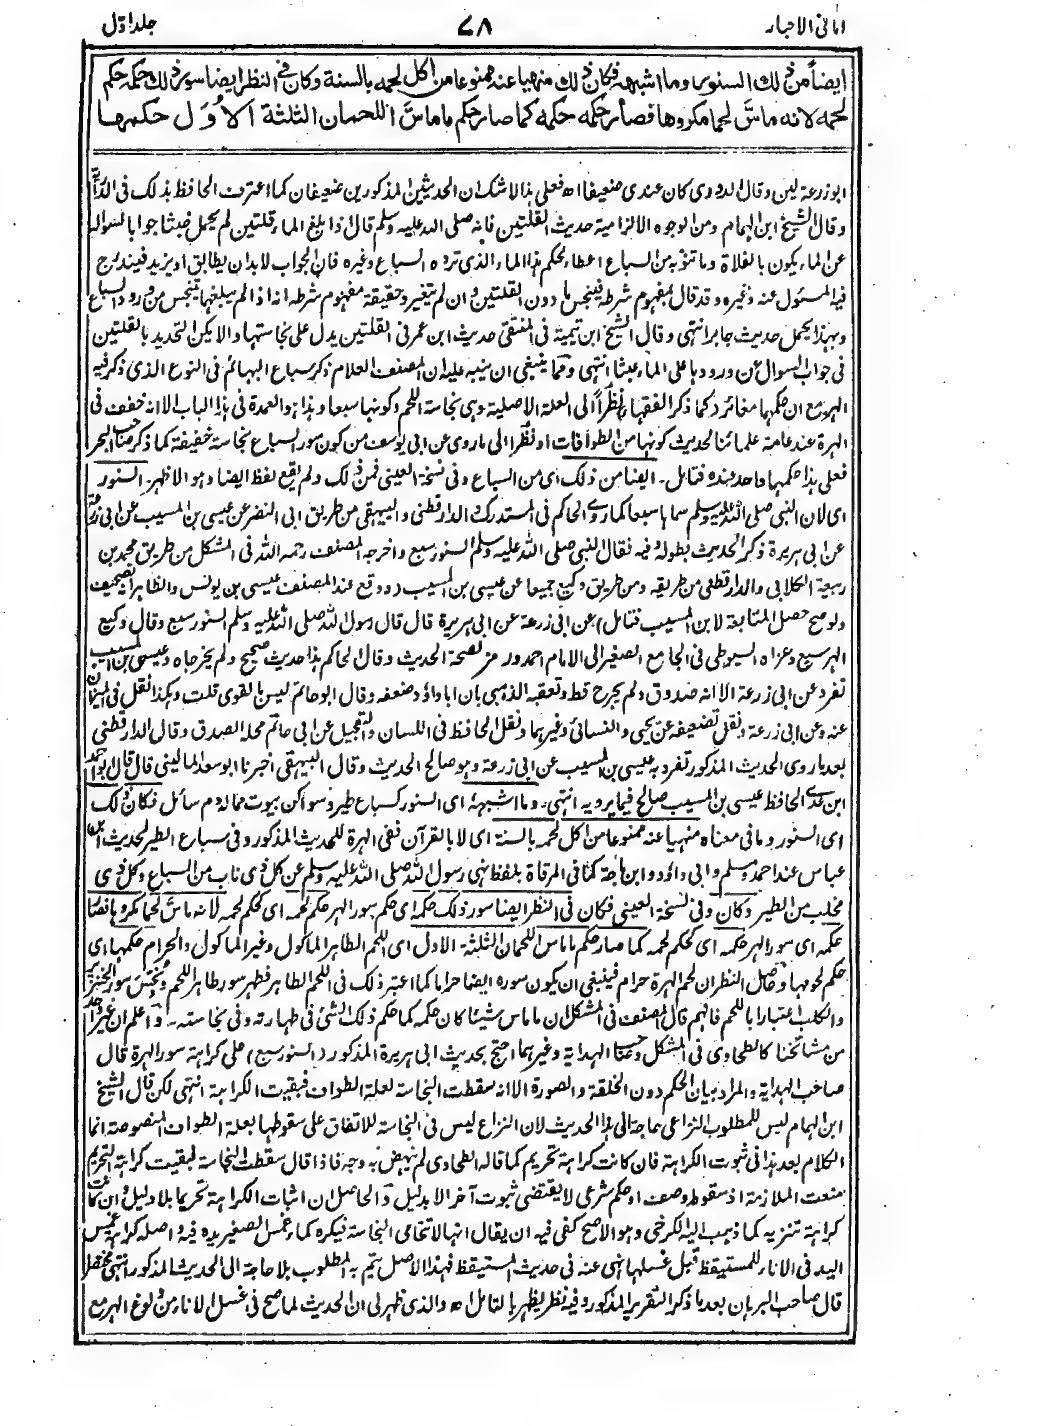 امانی الاحبار ٧٨ جلد اول
ايضاً من ذلك السنور وما اشبهه فكان ذلك منهيا عنه ممنوعا من اكل لحمه بالسنة وكان فى النظر ايضا سور ذلك حكمه حكم
لحمه لانه ماسَّ لحما مكروها فصار حكمه حكمه كما صار حكم ما ماسَّ اللحمان الثلثة الاُوَل حكمها
ابو زرعة لين وقال الدوری كان عندی ضعيفا اھ فعلى هذا لا شك ان الحديثين المذكورين ضعيفان كما اعترف الحافظ بذلك فى
وقال الشيخ ابن الهمام ومن الوجوه الالزامية حديث القلتين فانه صلى الله عليه وسلم قال اذا بلغ الماء قلتين لم يحمل خبثا جوابا لسواله
عن الماء يكون بالفلاة وما تنوبه من السباع اعطاء لحكم هذا الماء الذی ترده السباع وغيره فان الجواب لا بد ان يطابق او يزيد فيندرج
فيه المسئول عنه وغيره وقد قال بمفهوم شرطه فينجس ما دون القلتين وان لم يتغير وحقيقة مفهوم شرطه انه اذا لم يبلغها يتنجس من ورود السباع
وبهذا يحمل حديث جابر انتهى وقال الشيخ ابن تيمية فى المنتقى حديث ابن عمر فى القلتين يدل على نجاستها والا يكن التحديد بالقلتين
فى جواب السوال عن ورودها على الماء عبثا انتهى ومما ينبغى ان ينبه عليه ان المصنف العلام ذكر سباع البهائم فى النوع الذی ذكر فيه
الهر مع ان حكمها مغائر كما ذكر الفقهاء نظراً الى العلة الاصلية وهى نجاسة اللحم وكونها سبعا وهذا هو العمدة فى هذا الباب الا انه خفف فى
الهرة عند عامة علمائنا لحديث كونها من الطوافات او نظرا الى ما روی عن ابى يوسف من كون سور السباع نجاسة خفيفة كما ذكره صاحب البحر
فعلى هذا حكمها واحد عنده فتامل۔ ايضا من ذلك ای من السباع وفى نسخة العينى فمن ذلك ولم يقع لفظ ايضا وهو الاظهر۔ السنور
ای لان النبى صلى الله عليه وسلم سماها سبعا كما روى الحاكم فى المستدرك والدارقطنى والبيهقى من طريق ابى النضر عن عيسى بن المسيب عن ابى زرعة
عن ابى هريرة ذكر الحديث بطوله وفيه فقال النبى صلى الله عليه وسلم السنور سبع واخرجه المصنف رحمه الله فى المشكل من طريق محمد بن
ربيعة الكلابى والدارقطنى من طريقه ومن طريق وكيع جميعا عن عيسى بن المسيب (ووقع عند المصنف عيسى بن يونس والظاهر انه تصحيف
ولو صح حصل المتابعة لابن المسيب فتامل) عن ابى زرعة عن ابى هريرة قال قال رسول الله صلى الله عليه وسلم السنور سبع وقال وكيع
الهر سبع وعزاه السيوطى فى الجامع الصغير الى الامام احمد ورمز لصحة الحديث وقال الحاكم هذا حديث صحيح ولم يخرجاه وعيسى بن المسيب
تفرد عن ابى زرعة الا انه صدوق ولم يجرح قط وتعقبه الذهبى بان ابا داؤد ضعفه وقال ابو حاتم ليس بالقوی قلت وهكذا نقل فى الميزان
عنه وعن ابى زرعة ونقل تضعيفه عن يحيى والنسائى وغيرهما ونقل الحافظ فى اللسان والتعجيل عن ابى حاتم محله الصدق وقال الدارقطنى
بعد ما روی الحديث المذكور تفرد به عيسى بن المسيب عن ابى زرعة وهو صالح الحديث وقال البيهقى اخبرنا ابو سعد المالينى قال قال ابو احمد
ابن عدی الحافظ عيسى بن المسيب صالح فيما يرويه انتهى۔ وما اشبهه ای السنور كسباع طير وسواكن بيوت مما له دم سائل فكان ذلك
ای السنور وما فى معناه منهيا عنه ممنوعا من اكل لحمه بالسنة ای لا بالقرآن ففى الهرة للحديث المذكور وفى سباع الطير لحديث ابن
عباس عند احمد ومسلم وابى داؤد وابن ماجة كما فى المرقاة بلفظ نهى رسول الله صلى الله عليه وسلم عن كل ذی ناب من السباع وكل ذی
مخلب من الطير وكان وفى نسخة العينى فكان فى النظر ايضا سور ذلك حكمه ای حكم سور الهر حكم لحمه ای كحكم لحمه لانه ماسَّ لحما مكروها فصار
حكمه ای سور الهر حكمه ای كحكم لحمه كما صار حكم ما ماس اللحمان الثلثة۔ الاول ای اللحم الطاهر الماكول وغير الماكول والحرام حكمها ای
حكم لحومها وحاصل النظر ان لحم الهرة حرام فينبغى ان يكون سوره ايضا حراما كما اعتبر ذلك فى اللحم الطاهر فطهر سور طاهر اللحم ونجس سور الخنزير
والكلب اعتبارا باللحم فافهم قال المصنف فى المشكل ان ما ماس شيئا كان حكمه كما حكم ذلك الشئ فى طهارته وفى نجاسته۔ واعلم ان غير واحد
من مشائخنا كالطحاوی فى المشكل وصاحب الهداية وغيرهما احتج بحديث ابى هريرة المذكور (السنور سبع) على كراهة سور الهرة قال
صاحب الهداية والمراد بيان الحكم دون الخلقة والصورة الا انه سقطت النجاسة لعلة الطواف فبقيت الكراهة انتهى لكن قال الشيخ
ابن الهمام ليس للمطلوب النزاعى حاجة الى هذا الحديث لان النزاع ليس فى النجاسة للاتفاق على سقوطها بعلة الطواف المنصوصة انما
الكلام بعد هذا فى ثبوت الكراهة فان كانت كراهة تحريم كما قاله الطحاوی لم ينهض به وجه فاذا قال سقطت النجاسة فبقيت كراهة التحريم
منعت الملازمة اذ سقوط وصف او حكم شرعى لا يقتضى ثبوت آخر الا بدليل والحاصل ان اثبات الكراهة تحريما بلا دليل وان كانت
كراهة تنزيه كما ذهب اليه الكرخى وهو الاصح كفى فيه ان يقال انها لا تتحامى النجاسة فيكره كماء غمس الصغير يده فيه واصله كراهة غمس
اليد فى الاناء للمستيقظ قبل غسلها نهى عنه فى حديث المستيقظ فهذا الاصل يتم به المطلوب بلا حاجة الى الحديث المذكور انتهى مختصرا
قال صاحب البرهان بعد ما ذكر التقرير المذكور وفيه نظر يظهر بالتامل اھ والذی ظهر لى ان الحديث لما صح فى غسل الاناء من ولوغ الهر مع